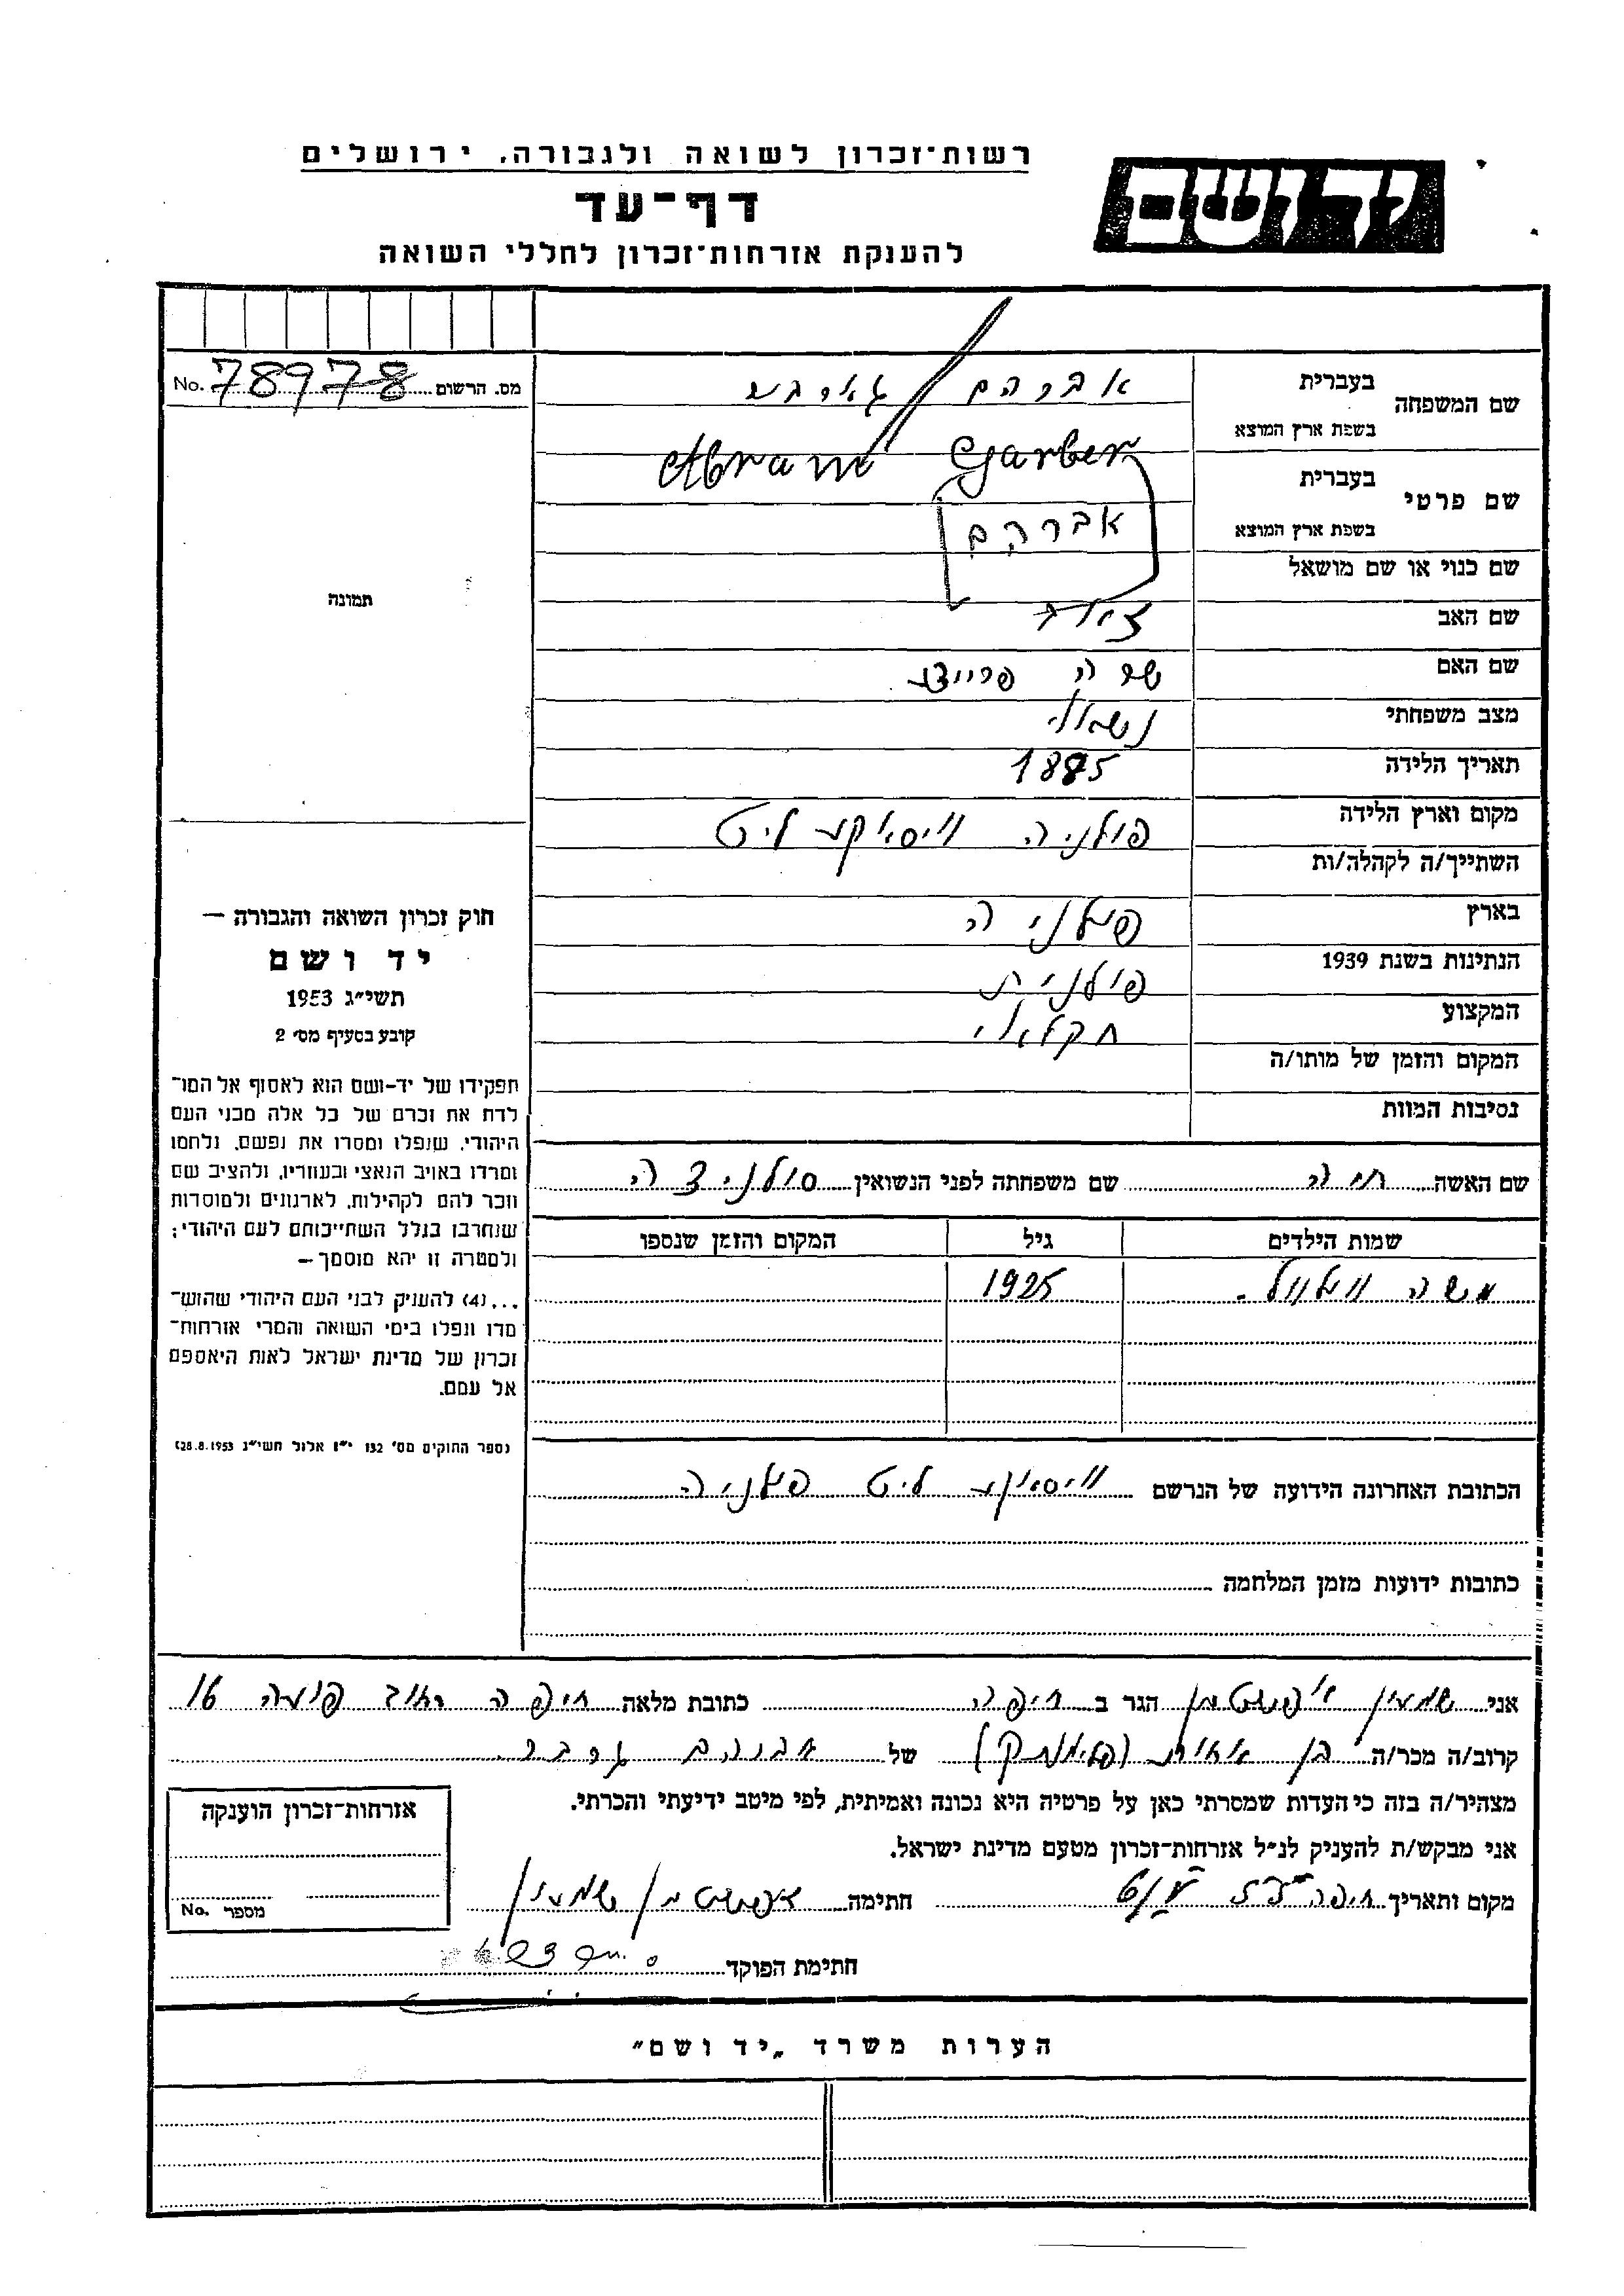 רשות־זכרון לשואה ולגבורה, ירושלים
יד ושם
דף־עד
להענקת אזרחות־זכרון לחללי השואה
מס. הרשום No. 78978
שם המשפחה בעברית אברהם גארבער
בשפת ארץ המוצא Abram Garber
שם פרטי בעברית אברהם
בשפת ארץ המוצא
שם כנוי או שם מושאל
תמונה
שם האב
שם האם שרה
מצב משפחתי נשואי
תאריך הלידה 1885
מקום וארץ הלידה פולניה וויסאקע ליט
השתייך/ה לקהלה/ות
בארץ פולניה
הנתינות בשנת 1939 פולנית
המקצוע חקלאי
המקום והזמן של מותו/ה
נסיבות המוות
חוק זכרון השואה והגבורה —
יד ושם
תשי״ג 1953
קובע בסעיף מס׳ 2
תפקידו של יד-ושם הוא לאסוף אל המו־
לדת את זכרם של כל אלה מבני העם
היהודי, שנפלו ומסרו את נפשם, נלחמו
ומרדו באויב הנאצי ובעוזריו, ולהציב שם
וזכר להם לקהילות, לארגונים ולמוסדות
שנחרבו בגלל השתייכותם לעם היהודי;
ולמטרה זו יהא מוסמך —
...(4) להעניק לבני העם היהודי שהוש־
מדו ונפלו בימי השואה והמרי אזרחות־
זכרון של מדינת ישראל לאות היאספם
אל עמם.
(ספר החוקים מס׳ 132 י״ז אלול תשי״ג 28.8.1953)
שם האשה חיה שם משפחתה לפני הנשואין
שמות הילדים גיל המקום והזמן שנספו
משה וועלוול 1925
הכתובת האחרונה הידועה של הנרשם וויסאקע ליט פולניה
כתובות ידועות מזמן המלחמה
אני שמעון הגר ב חיפה כתובת מלאה חיפה רחוב 16
קרוב/ה מכר/ה בן אחות של אברהם גרבר
מצהיר/ה בזה כי העדות שמסרתי כאן על פרטיה היא נכונה ואמיתית, לפי מיטב ידיעתי והכרתי.
אני מבקש/ת להעניק לנ״ל אזרחות־זכרון מטעם מדינת ישראל.
מקום ותאריך חיפה חתימה שמעון
חתימת הפוקד
אזרחות־זכרון הוענקה
מספר No.
הערות משרד „יד ושם״